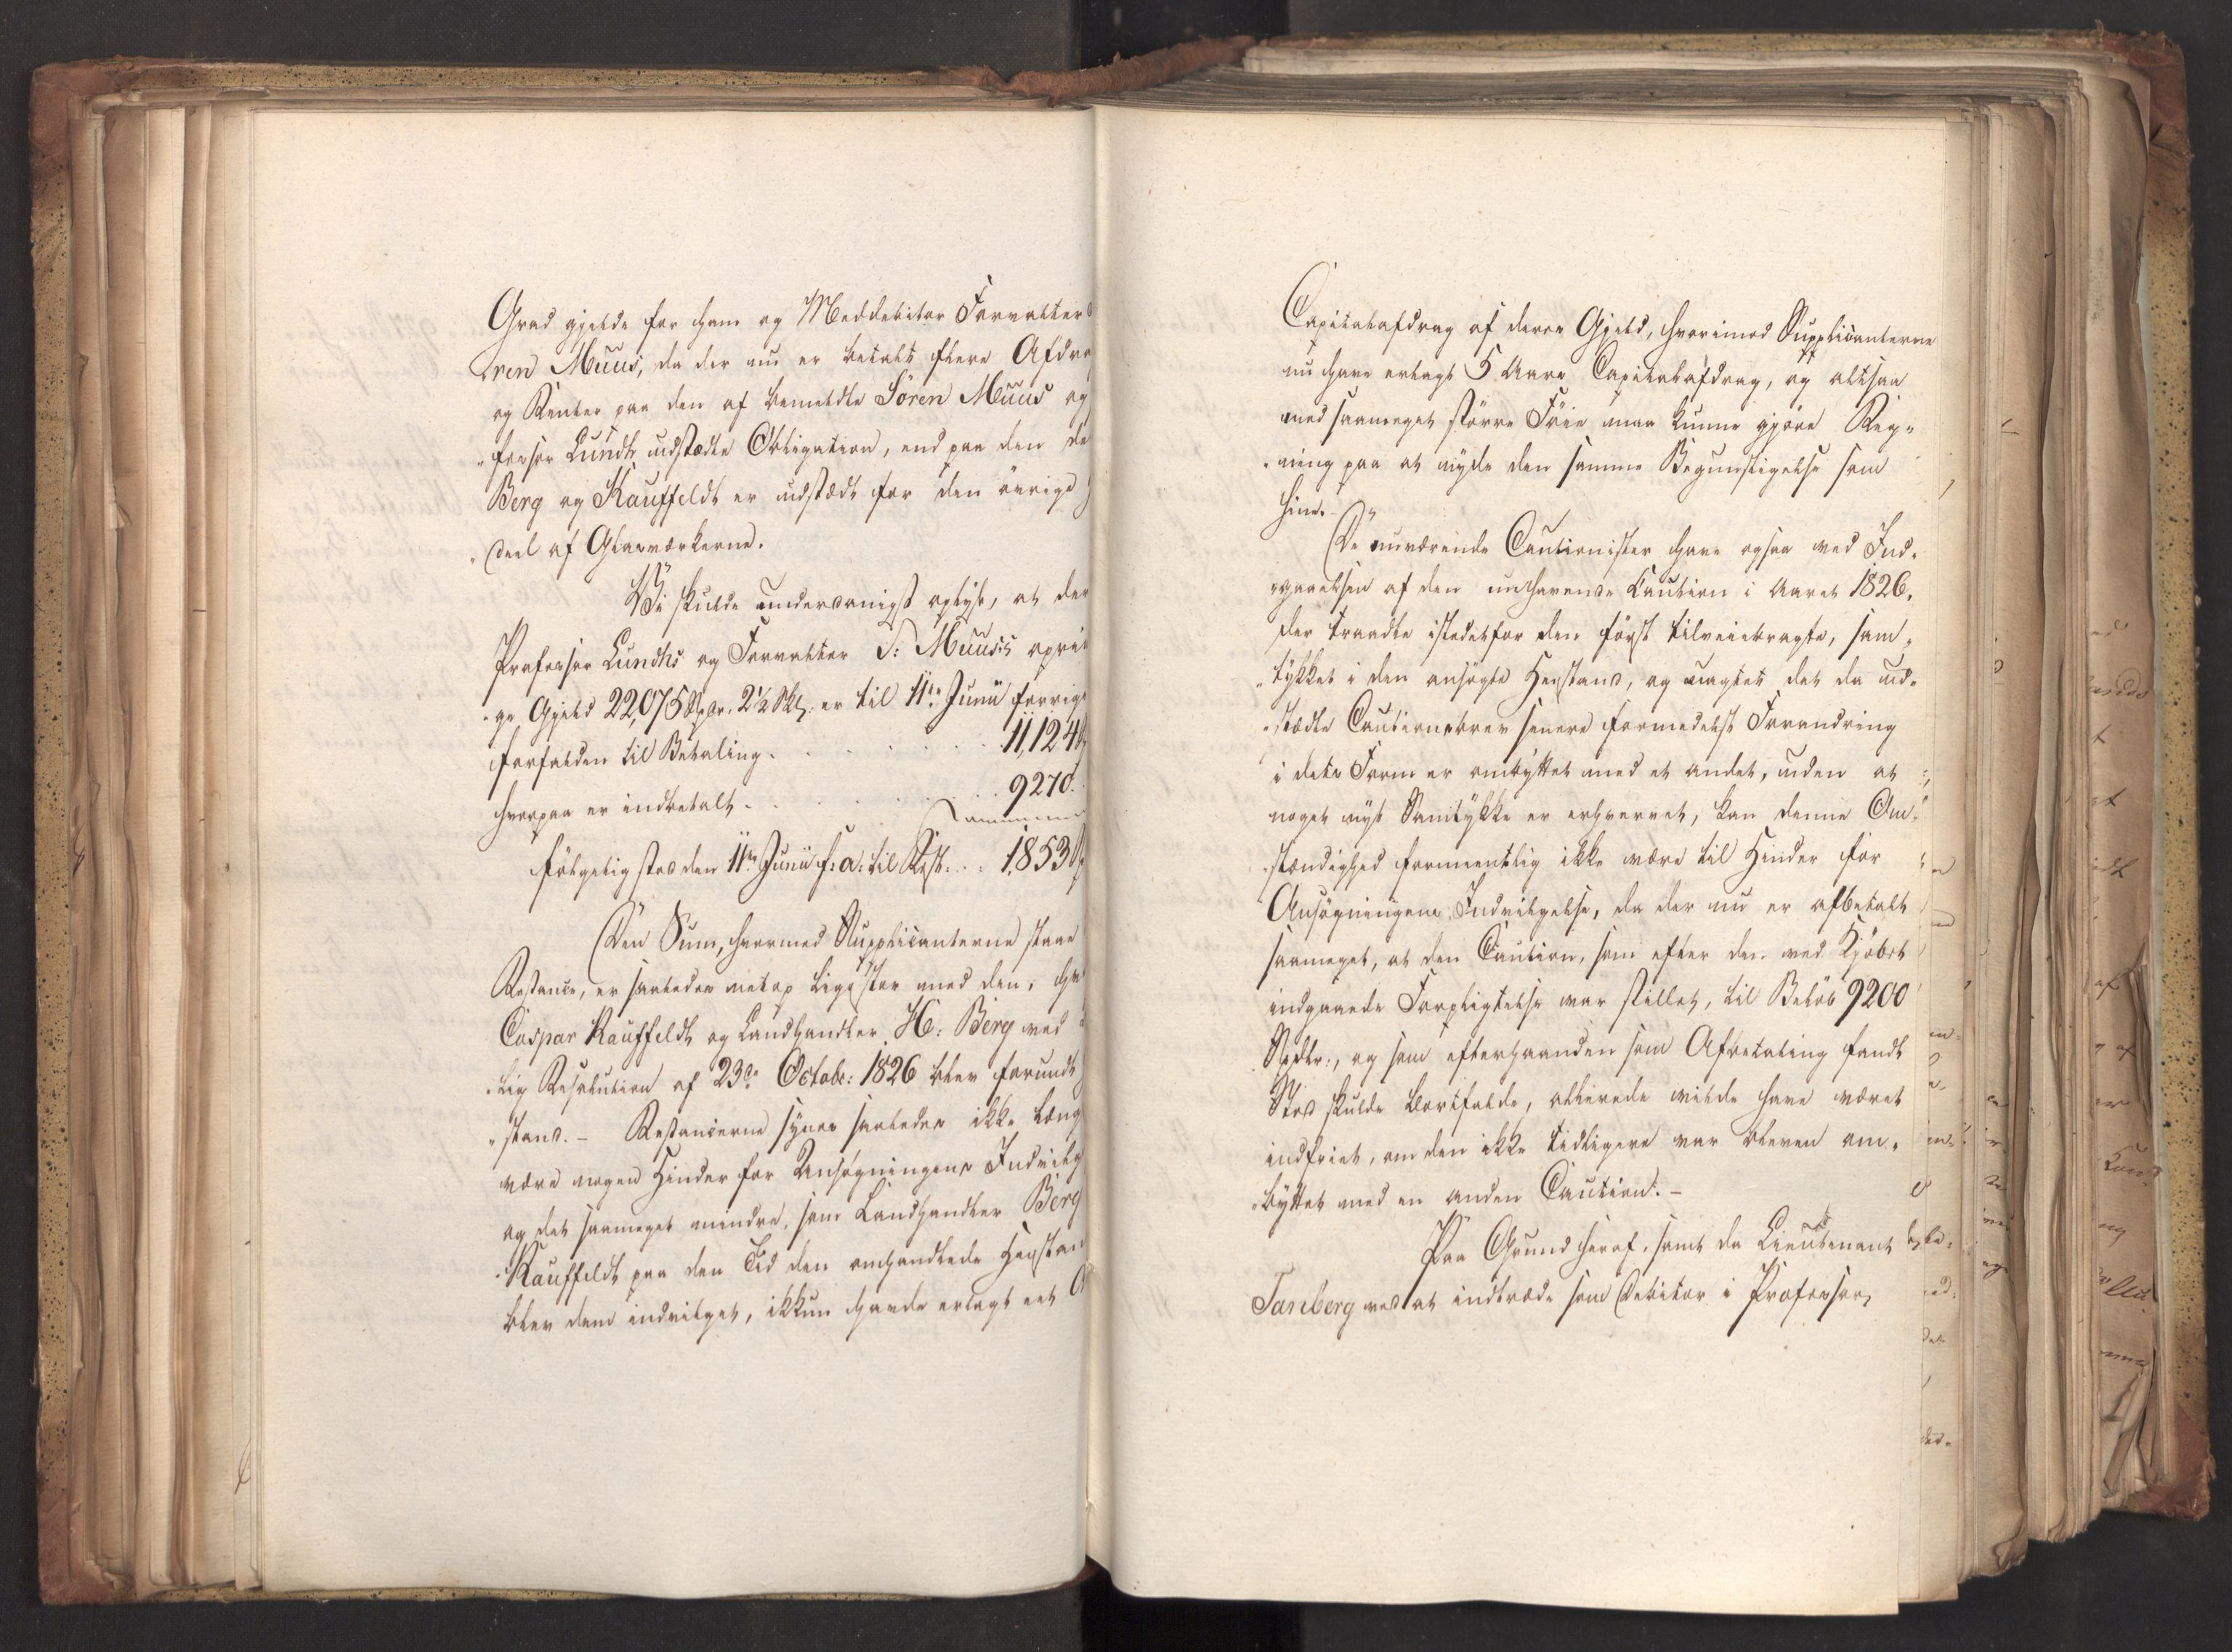 Grad gjelde for ham og Meddebitor Forvalter
ren Muus, da der nu er betalt flere Afdra
og Renter paa den af bemeldte Sören Muus og
"fessor Lundh udstædte Obligation, end paa den de
Berg og Kauffeldt er udstædt for den övrige
"Deel af Glasværkerne.
Vi skulde underdanigst oplyse, at der
Professor Lundhs og Forvalter S: Muus's oprin
"ge Gjeld 22,075 Spdr. 2½ Skl. er til 11te Junii forrige
forfalden til Betaling. . . . . . . 11,124
hvorpaa er indbetalt. . . . . . . 9270.
fölgelig stod den 11te Junii f: a: til Rest. . . 1,853
Den Sum, hvormed Supplicanterne staae
Restance, er saaledes netop ligestor med den, hv
Caspar Kauffeldt og Landhandler H: Berg ved
"lig Resolution af 23de Octobr: 1826 blev forundt
"stand. – Restancerne synes saaledes ikke læng
være nogen Hinder for Ansögningens Indvilg
og det saameget mindre, som Landhandler Berg
Kauffeldt paa den Tid den omhandlede Henstan
blev dem indvilget, ikkun havde erlagt eet A
Capitalafdrag af deres Gjeld, hvorimod Supplicanterne
nu have erlagt 5 Aars Capitalafdrag, og altsaa
med saameget större Föie maa kunne gjöre Reg"
"ning paa at nyde den samme Begunstigelse som
hine. –
De nuværende Cautionister have ogsaa ved Ind"
"gaaelsen af den nuhavende Caution i Aaret 1826,
der traadte istedetfor den först tilveiebragte, sam"
"tykket i den ansögte Henstand, og uagtet det da ud"
"stædte Cautionsbrev senere formedelst Forandring
i dets Form er ombyttet med et andet, uden at
noget nyt Samtykke er erhvervet, kan denne Om"
"stændighed formeentlig ikke være til Hinder for
Ansögningens Indvilgelse, da der nu er afbetalt
saameget, at den Caution, som efter den ved Kjöbet
indgaaede Forpligtelse var stillet, til Belöb 9200
Spdlr., og som efterhaanden som Afbetaling fandt
Sted skulde bortfalde, allerede vilde have været
indfriet, om den ikke tidligere var bleven om"
"byttet med en anden Caution. –
Paa Grund heraf, samt da Lieutenant
Tanberg ved at indtræde som Debitor i Professor